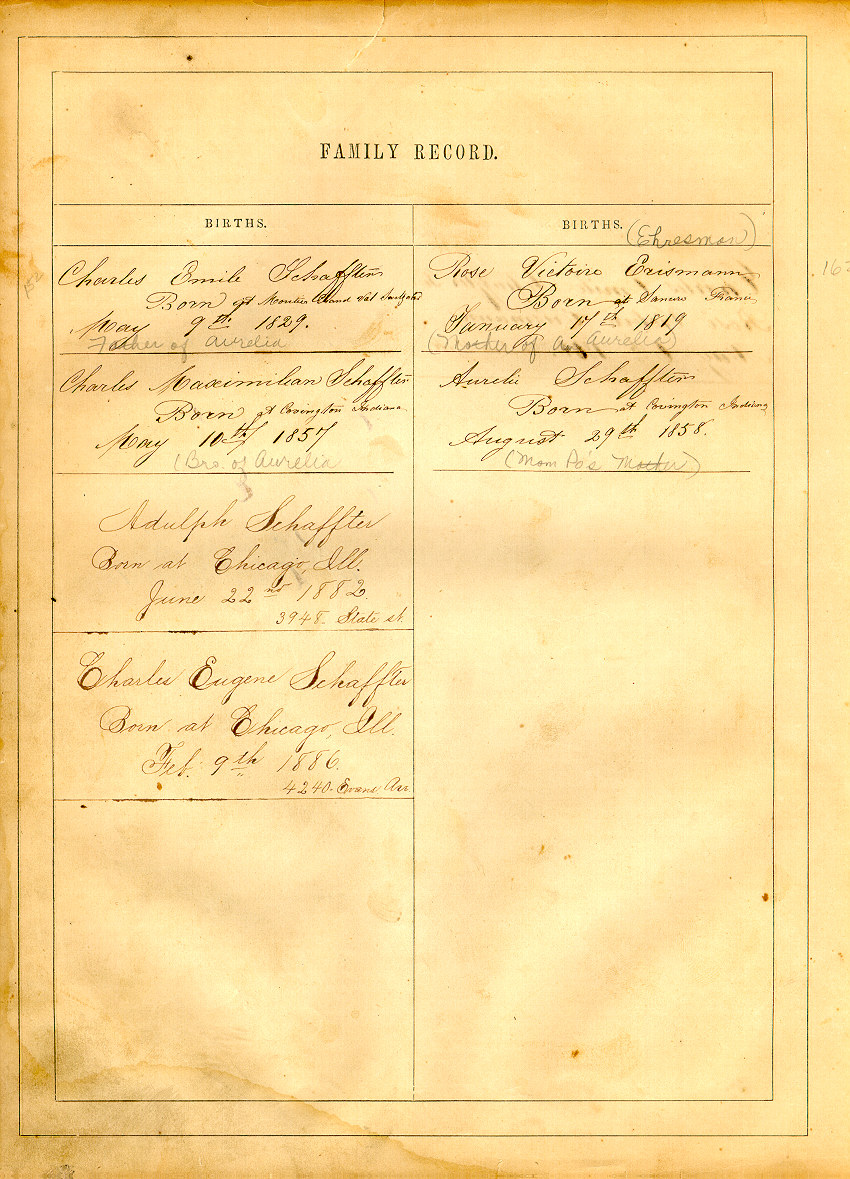 FAMILY RECORD.
BIRTHS.
Charles Emile Schaffter
Born at Moutier Grand Val
May 9th 1829.
Father of Aurelia
Charles Maximilian Schaffter
Born at Covington Indiana
May 10th 1857
(Bro. of Aurelia
Adulph Schaffter
Born at Chicago, Ill.
June 22nd 1882.
3948 State st.
Charles Eugene Schaffter
Born at Chicago, Ill.
Feb. 9th 1886.
4240 Evans Av.
BIRTHS.
(Ehresman)
Rose Victoire Erismann
Born at France
January 17th 1819
(Mother of Aurelia)
Aurelie Schaffter
Born at Covington Indiana
August 29th 1858.
(Mom Po's Mother)
152